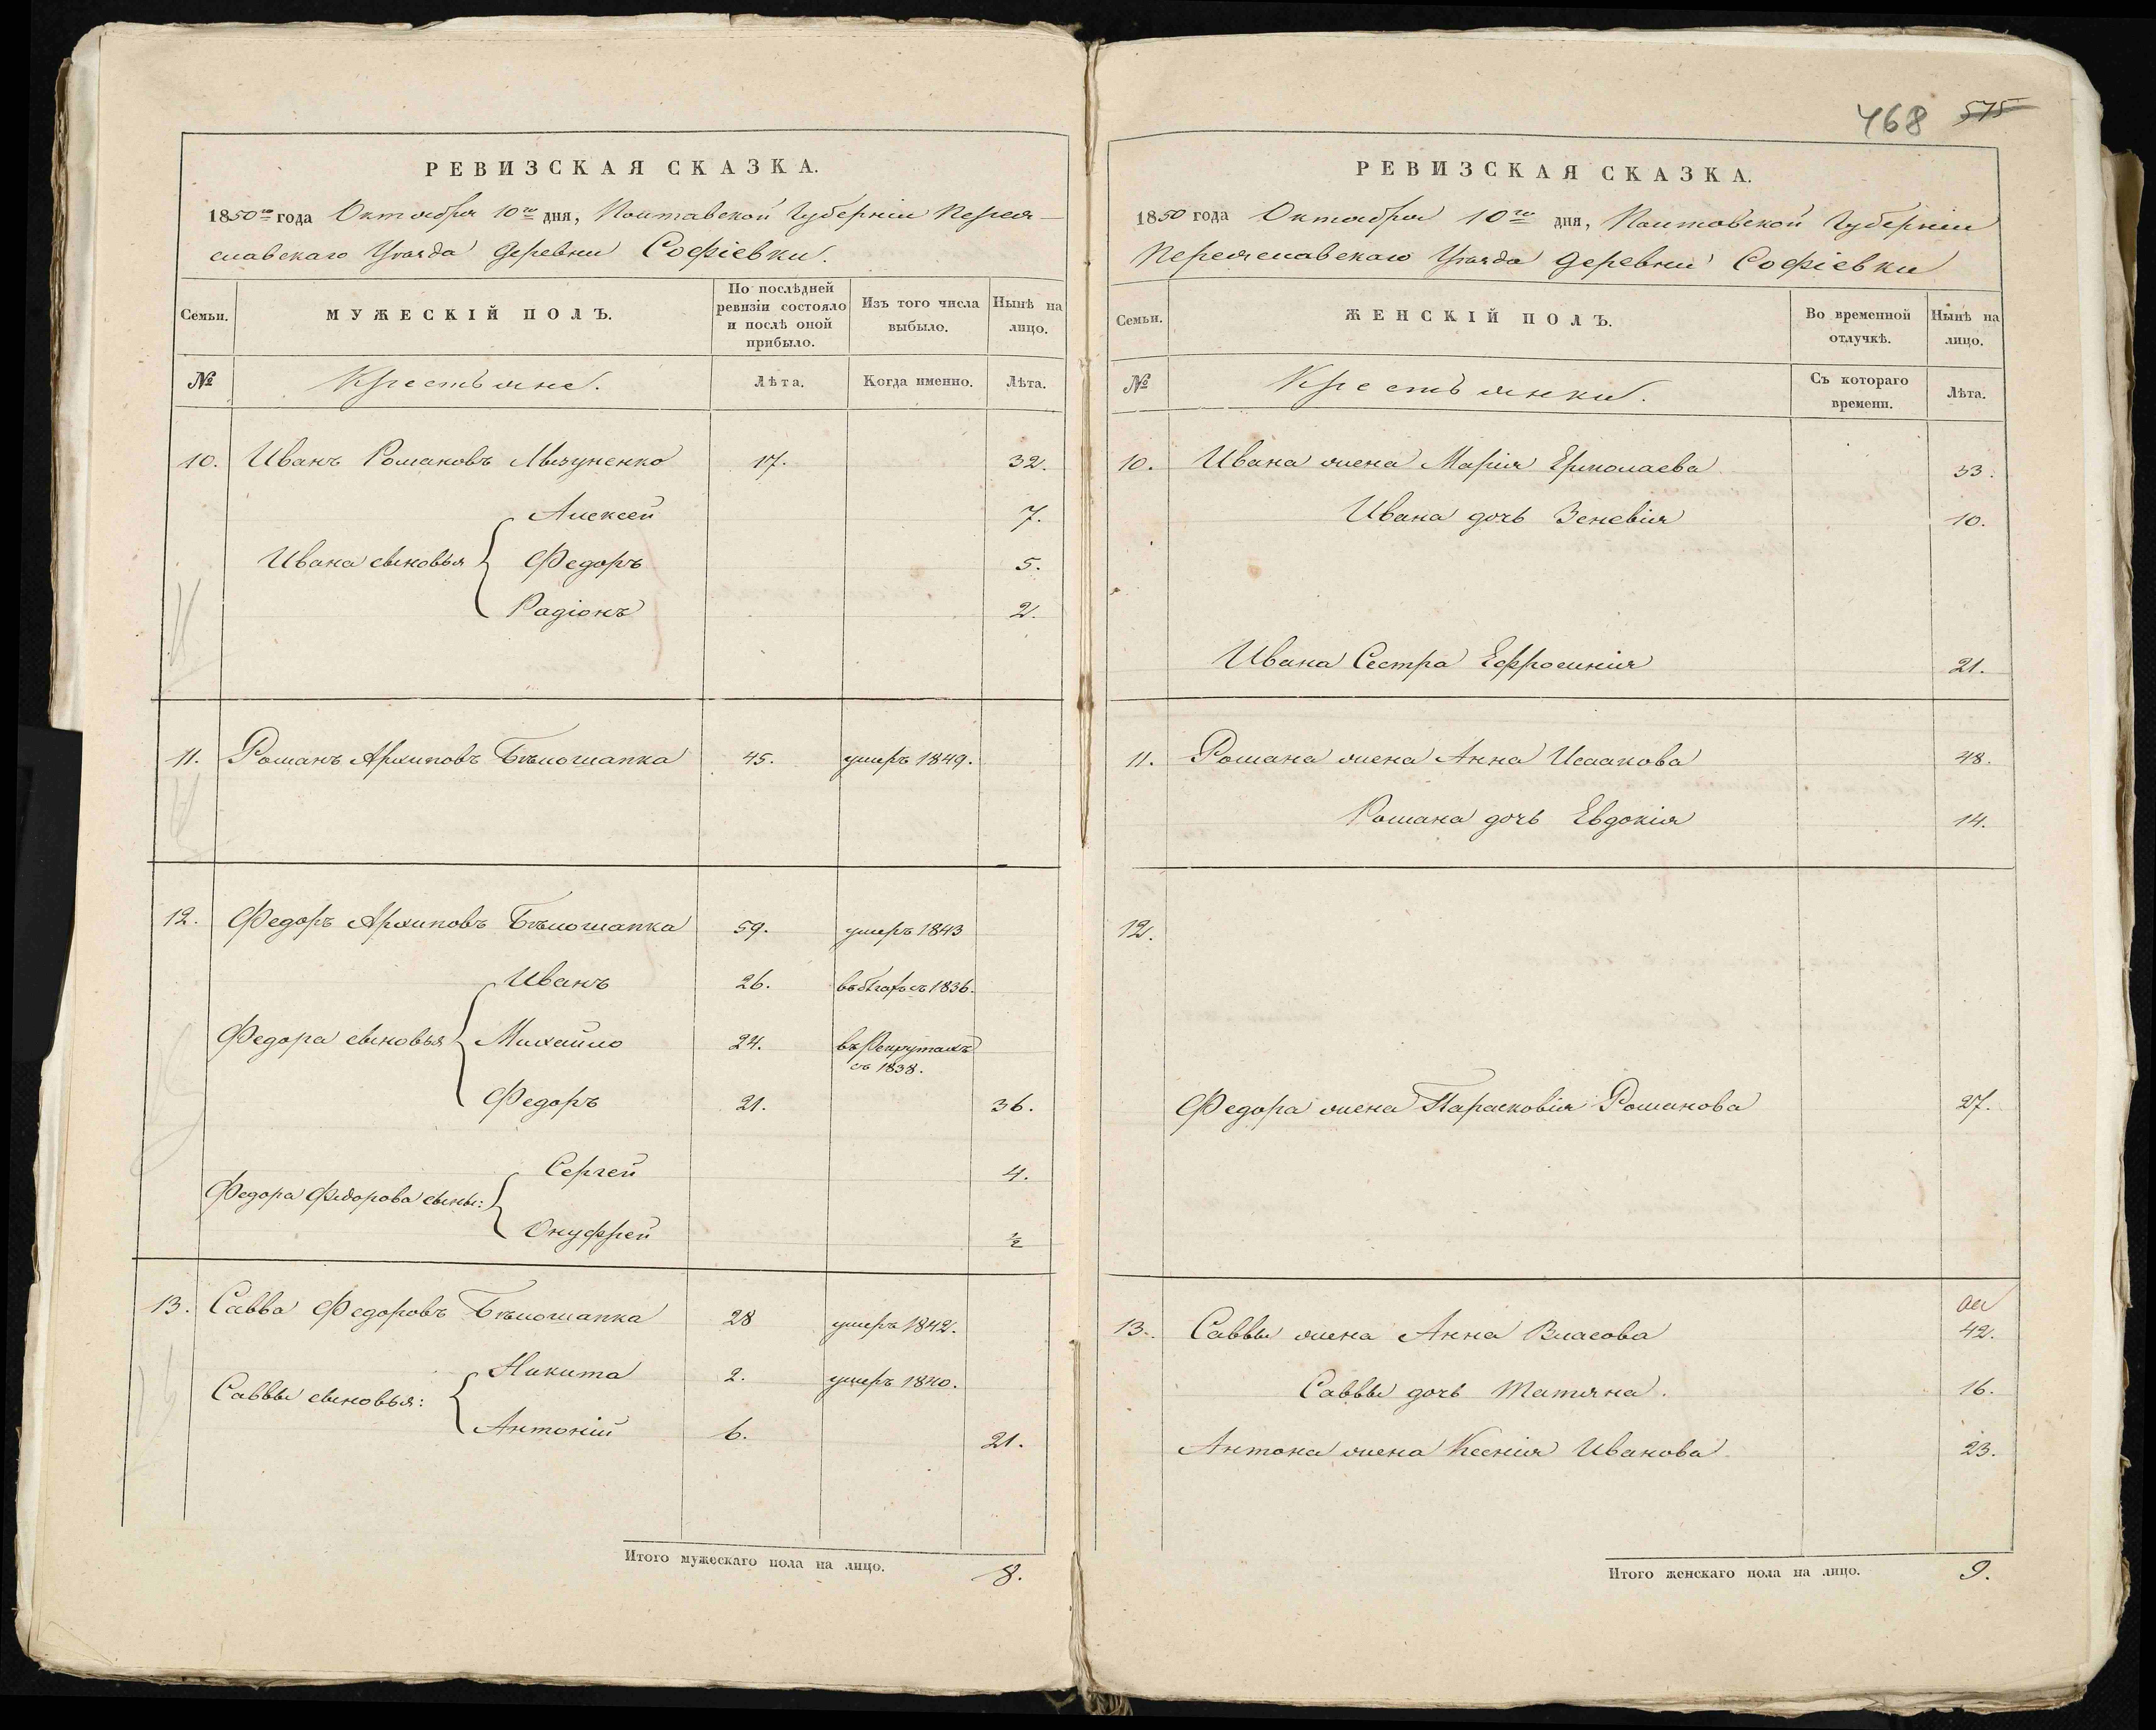 468 575
РЕВИЗСКАЯ СКАЗКА.
1850го года Октября 10го дня, Полтавской Губерніи Перея-
славскаго Уѣзда Деревни Софіевки.
Семьи.
МУЖЕСКІЙ ПОЛЪ.
По послѣдней ревизіи состояло и послѣ оной прибыло.
Изъ того числа выбыло.
Нынѣ на лицо.
№
Крестьяне.
Лѣта.
Когда именно.
Лѣта.
10. Иванъ Романовъ 17. 32.
Алексей 7.
Ивана сыновья Федоръ 5.
Радіонъ 2.
11. Романъ Архиповъ Бѣлошапка 45. умеръ 1849.
12. Федоръ Архиповъ Бѣлошапка 59. умеръ 1843
Иванъ 26. въ бѣгахъ съ 1836.
Федора сыновья Михайло 24. въ Рекрутахъ
съ 1838.
Федоръ 21. 36.
Сергей 4.
Федора Федорова сыны:
Онуфрей ½
13. Савва Федоровъ Бѣлошапка 28 умеръ 1842.
Никита 2. умеръ 1840.
Саввы сыновья:
Антоній 6. 21.
Итого мужескаго пола на лицо. 8.
РЕВИЗСКАЯ СКАЗКА.
1850 года Октября 10го дня, Полтавской Губерніи
Переяславскаго Уѣзда Деревни Софіевки
Семьи.
ЖЕНСКІЙ ПОЛЪ.
Во временной отлучкѣ.
Нынѣ на лицо.
№
Крестьянки.
Съ котораго времени.
Лѣта.
10. Ивана жена Марія Ермолаева 33.
Ивана дочь Зеневія 10.
Ивана Сестра Ефросинія 21.
11. Романа жена Анна Исаакова 48.
Романа дочь Евдокія 14.
12.
Федора жена Парасковія Романова 27.
13. Саввы жена Анна Власова 42.
Саввы дочь Татяна. 16.
Антона жена Ксенія Иванова 23.
Итого женскаго пола на лицо. 9.